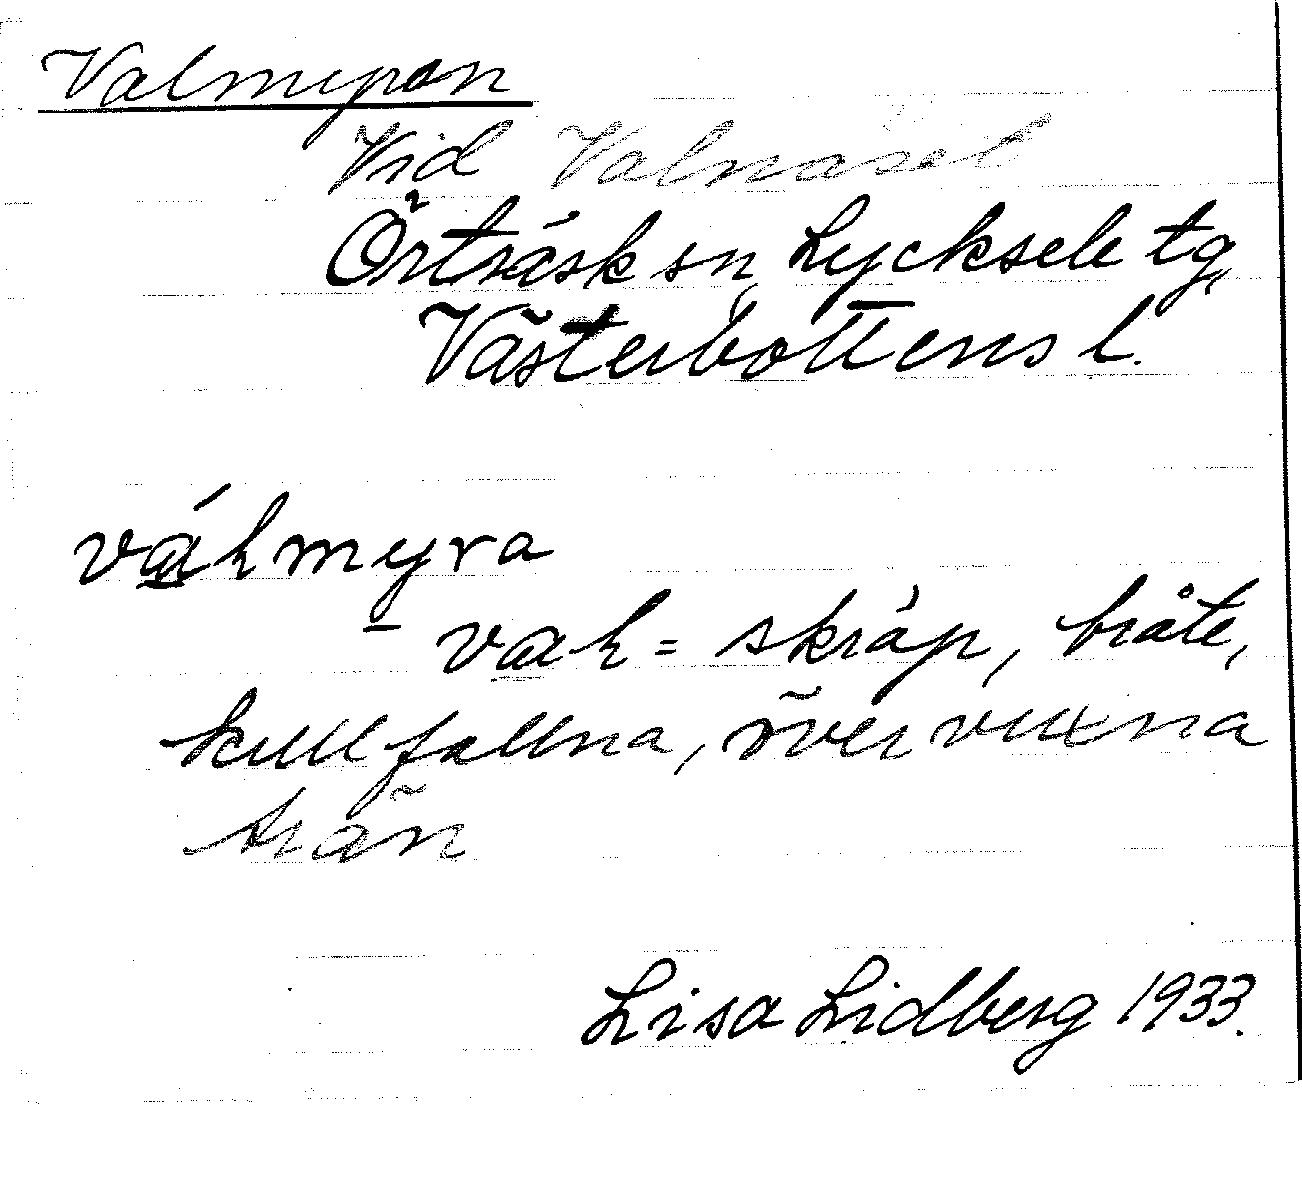 Valmyran
Vid Valnäset
Örträsk sn, Lycksele tg,
Västerbottens l.
váhmyra
- vah = skräp, bråte,
kullfallna, övervuxna
trän
Lisa Lidberg 1933.